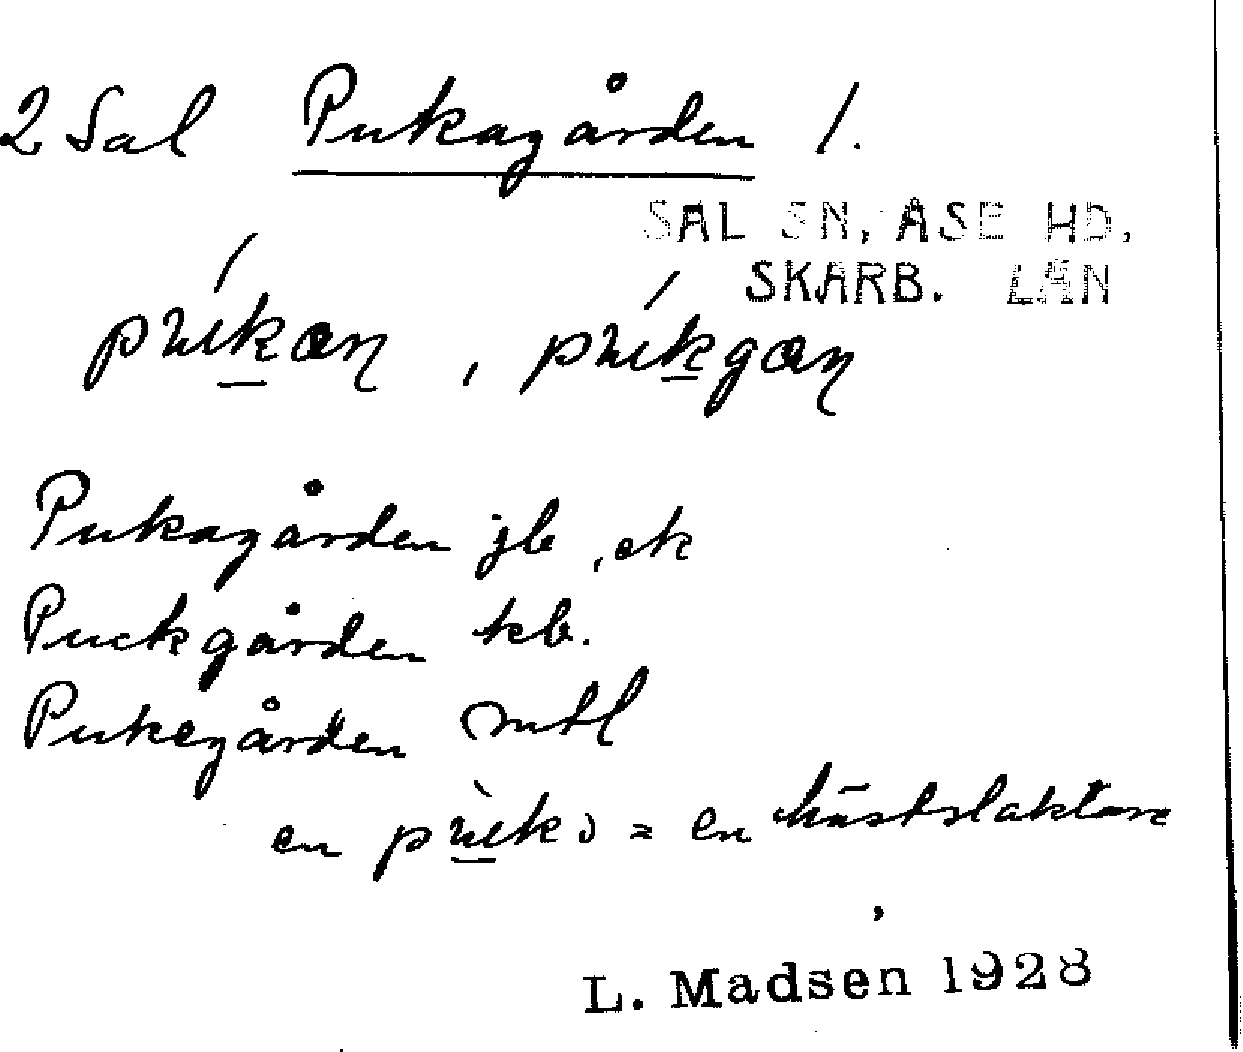 2 Sal Pukagården 1.
SAL SN, ÅSE HD,
SKARB. LÄN
Pukagården jb, ek
Puckgården kb.
Pukegården mtl
en = en hästslaktare
L. Madsen 1928